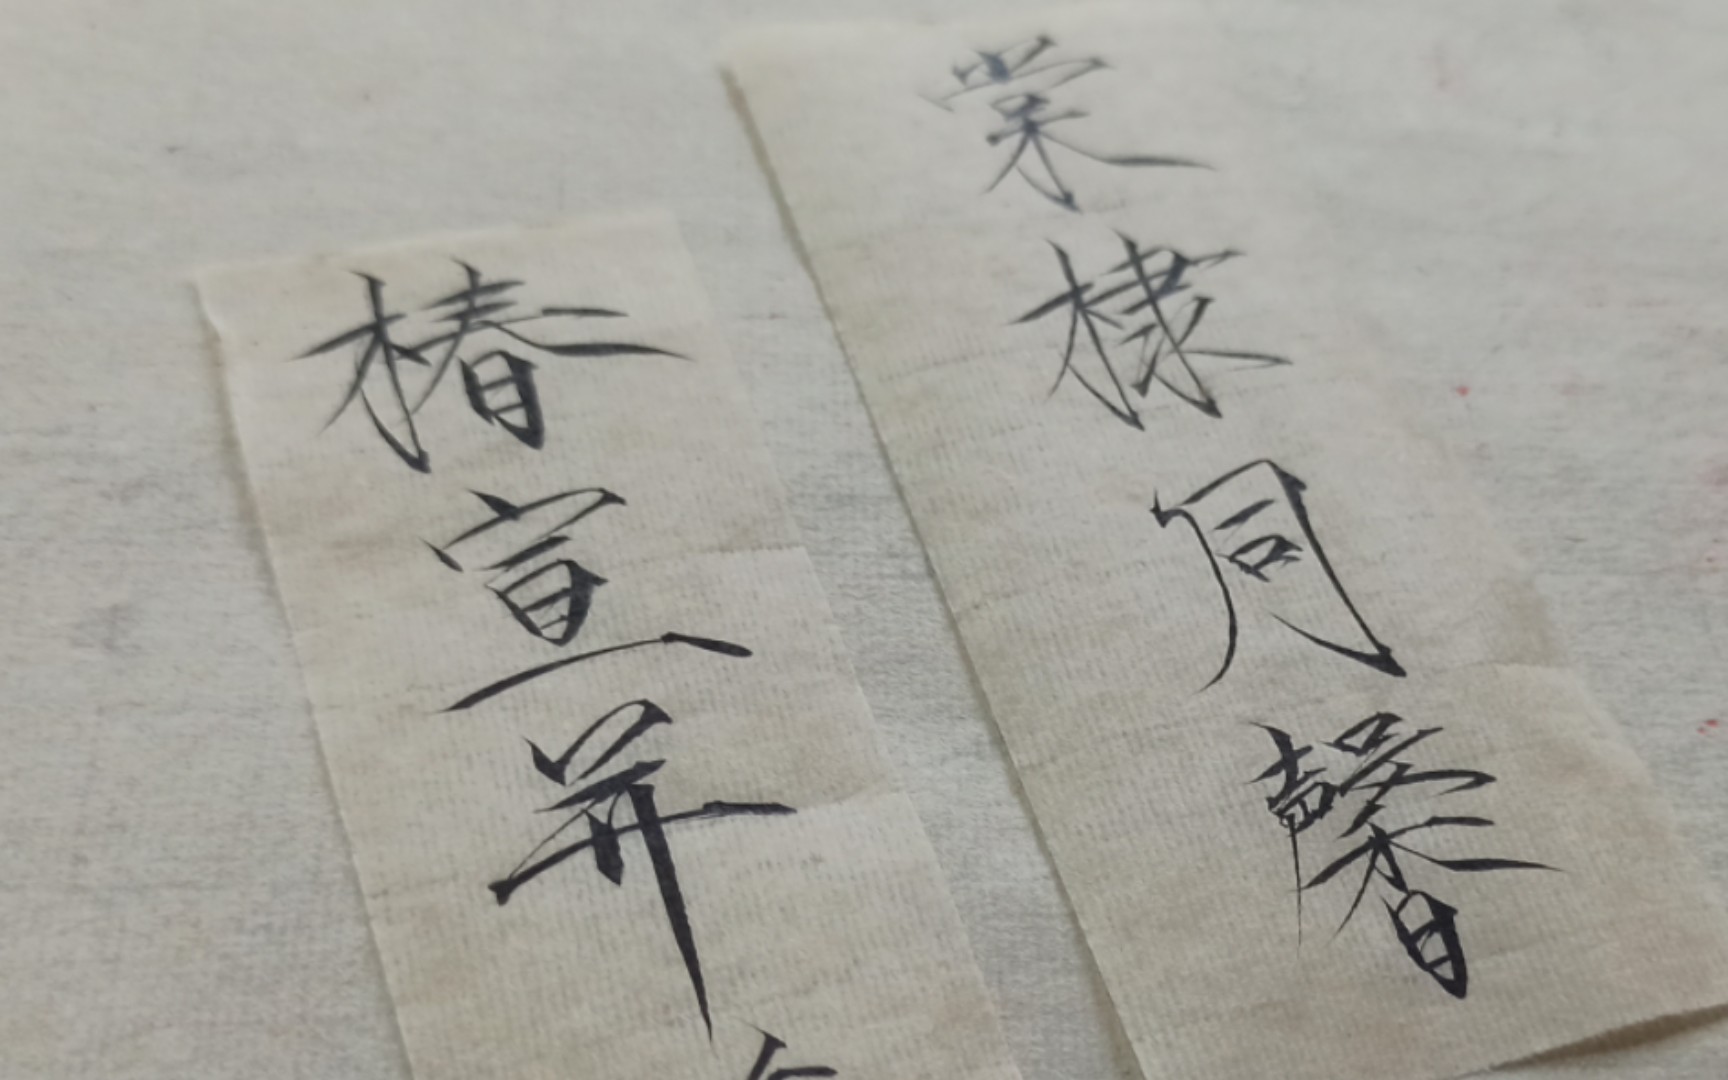 棠棣同馨
椿宣并